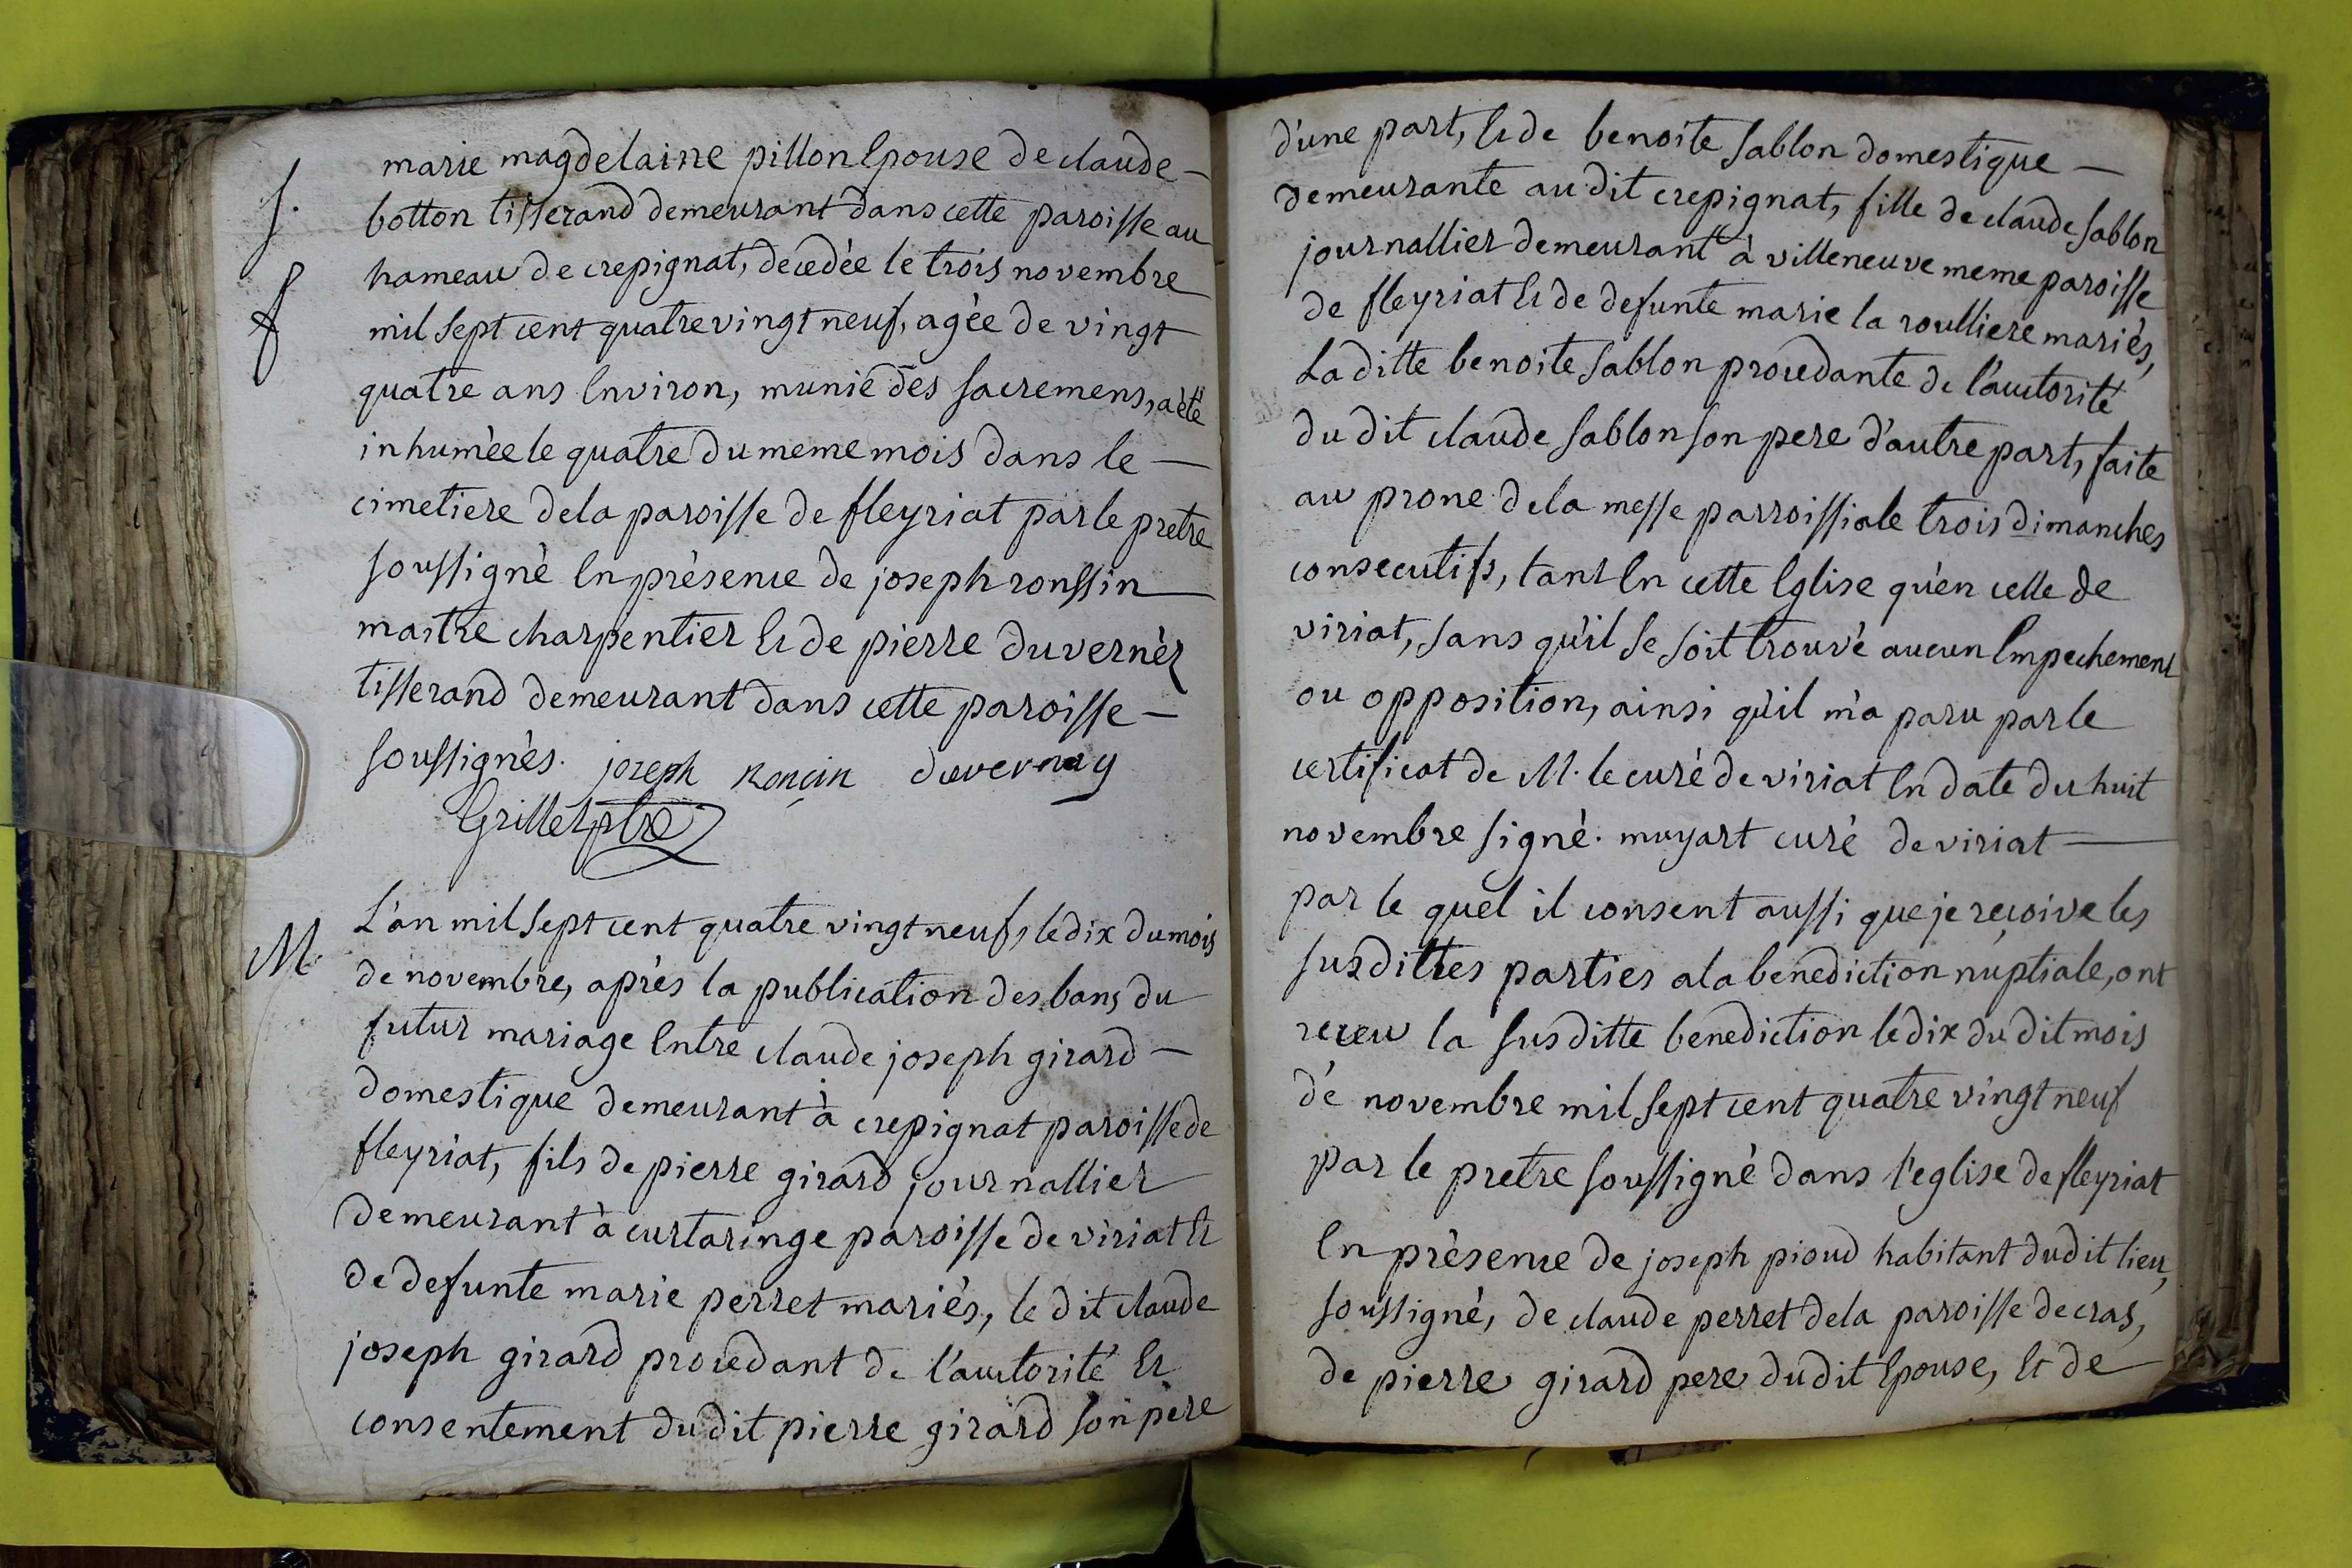 marie magdelaine pillon Epouse de claude -
S. botton tisserand demeurant dans cette paroisse au
hameau de crepignat, decedèe le trois novembre
f mil sept cent quatre vingt neuf, agèe de vingt
quatre ans Environ, munie des sacremens, a ètè
inhumèe le quatre du meme mois dans le —
cimetiere de la paroisse de fleyriat par le pretre
soussignè En prèsence de joseph ronssin
maitre charpentier Et de pierre duvernèr
tisserand demeurant dans cette paroisse —
soussignès. joseph Ronçin duvernay
Grillet ptre
M. L'an mil sept cent quatre vingt neuf, le dix du mois
de novembre, après la publication des bans du
futur mariage Entre claude joseph girard —
domestique demeurant à crepignat paroisse de
fleyriat, fils de pierre girard journallier
demeurant à curtaringe paroisse de viriat Et
de defunte marie perret mariés, le dit claude
joseph girard procedant de l'auctorité Et
consentement du dit pierre girard son père
d'une part, Et de benoite Sablon domestique —
demeurante au dit crepignat, fille de claude Sablon
journallier demeurant à villeneuve meme paroisse
de fleyriat Et de defunte marie la roulliere mariés,
La ditte benoite Sablon procedante de l'auctorité
du dit claude Sablon son pere d'autre part, faite
au prone de la messe parroissiale trois dimanches
consecutifs, tant En cette Eglise qu'en celle de
viriat, sans qu'il se soit trouvé aucun Empechement
ou opposition, ainsi qu'il m'a paru par le
certificat de M. le curé de viriat En date du huit
novembre signé. muyart curé de viriat —
par le quel il consent aussi que je reçoive les
susdittes parties a la benediction nuptiale, ont
receu la susditte benediction le dix du dit mois
de novembre mil sept cent quatre vingt neuf
par le pretre soussigné dans l'eglise de fleyriat
En prèsence de joseph pioud habitant dudit lieu,
soussigné, de claude perret de la paroisse de cras,
de pierre girard pere dudit Epouse, Et de